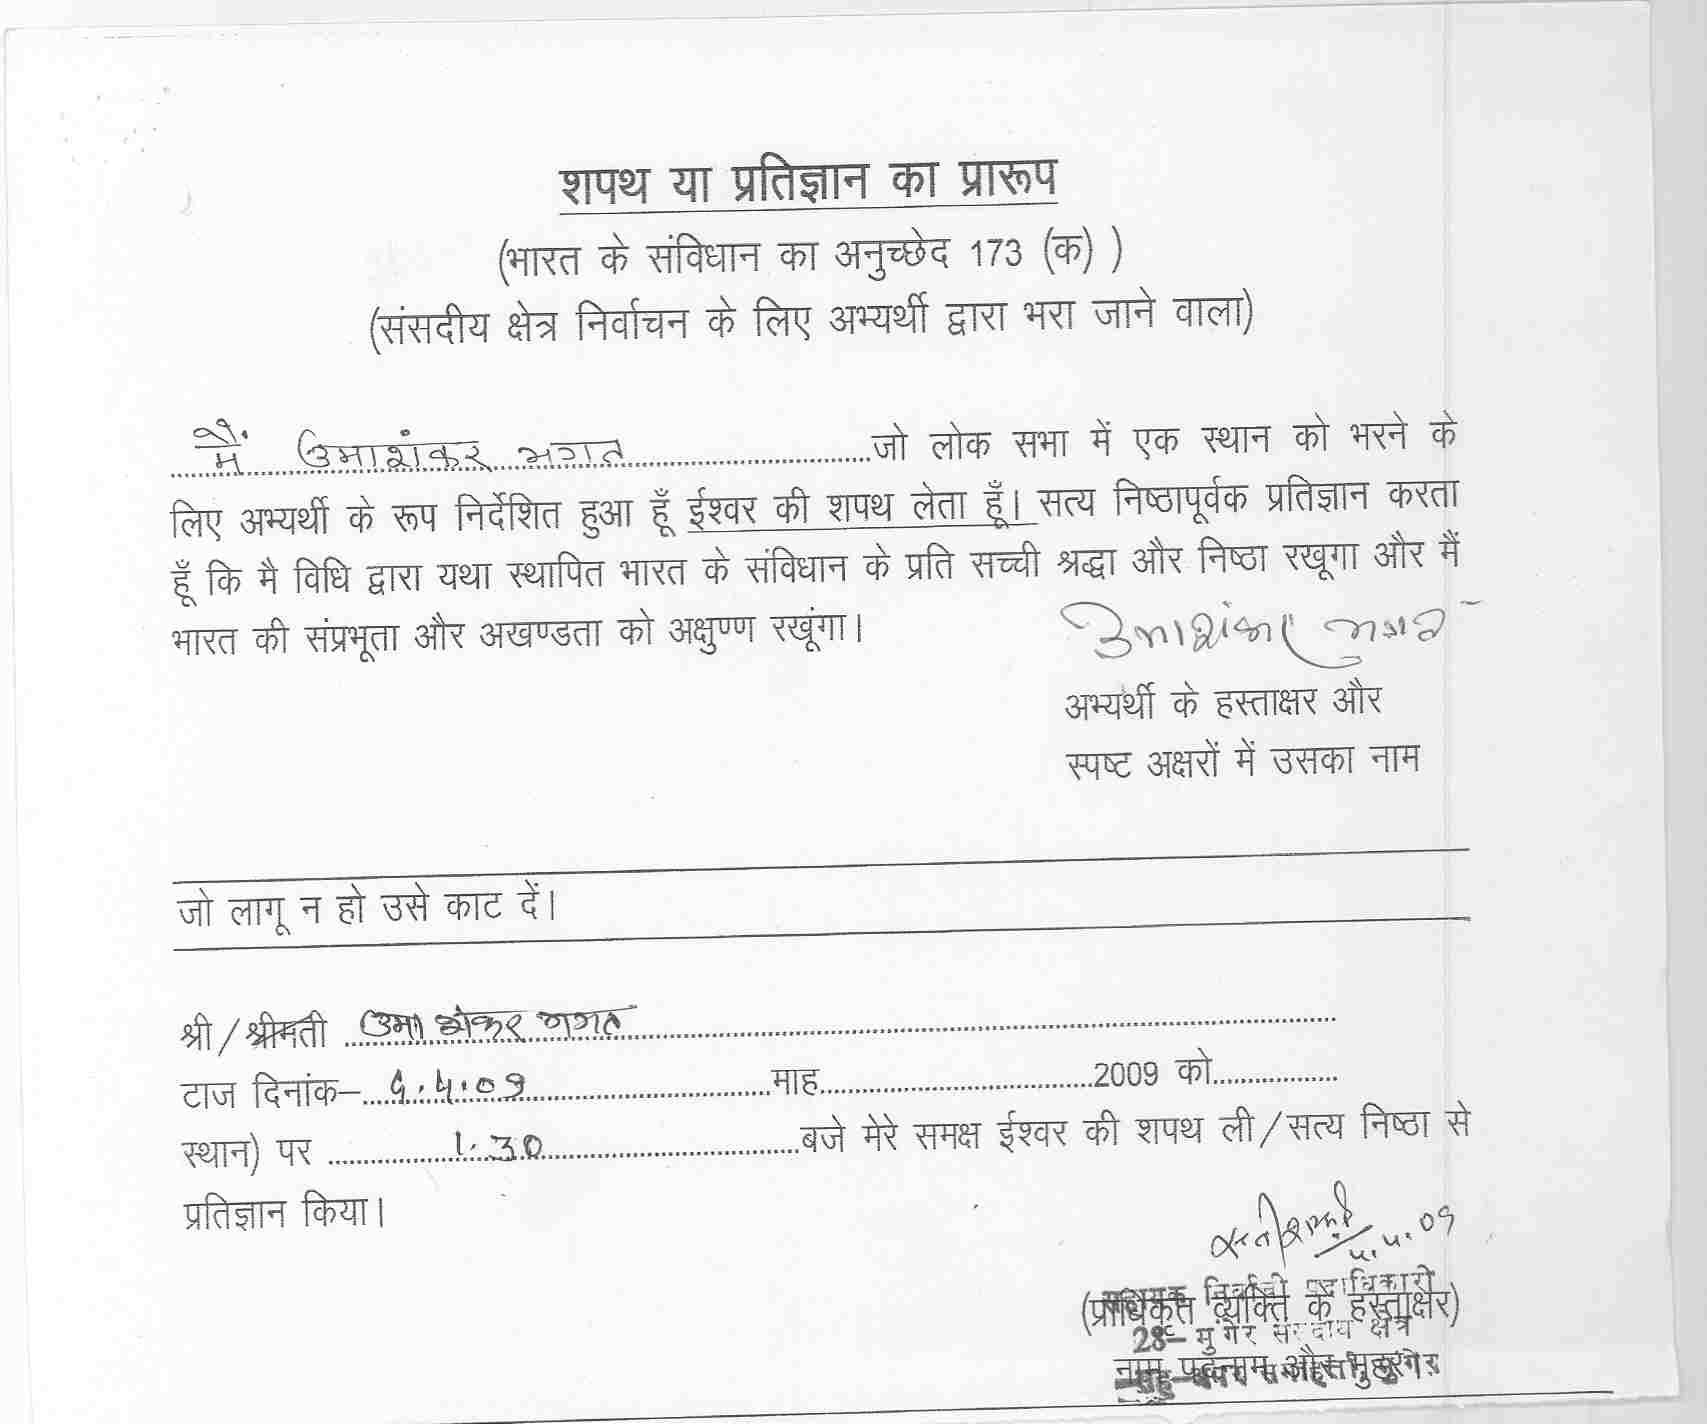 शपथ या प्रतिज्ञान का प्रारूप
(भारत के संविधान का अनुच्छेद 173 (क) )
(संसदीय क्षेत्र निर्वाचन के लिए अभ्यर्थी द्वारा भरा जाने वाला)
मैं उमाशंकर भगत जो लोक सभा में एक स्थान को भरने के
लिए अभ्यर्थी के रूप निर्देशित हुआ हूँ ईश्वर की शपथ लेता हूँ। सत्य निष्ठापूर्वक प्रतिज्ञान करता
हूँ कि मै विधि द्वारा यथा स्थापित भारत के संविधान के प्रति सच्ची श्रद्धा और निष्ठा रखूगा और मैं
भारत की संप्रभूता और अखण्डता को अक्षुण्ण रखूंगा।
उमाशंकर भगत
अभ्यर्थी के हस्ताक्षर और
स्पष्ट अक्षरों में उसका नाम
जो लागू न हो उसे काट दें।
श्री/श्रीमती उमा शंकर भगत
टाज दिनांक– 4.09 माह 2009 को
स्थान) पर 1.30 बजे मेरे समक्ष ईश्वर की शपथ ली/सत्य निष्ठा से
प्रतिज्ञान किया।
09
निर्वाची पदाधिकारी
(प्राधिकृत व्यक्ति के हस्ताक्षर)
28– मुंगेर संसदीय क्षेत्र
नाम पदनाम और मुहर